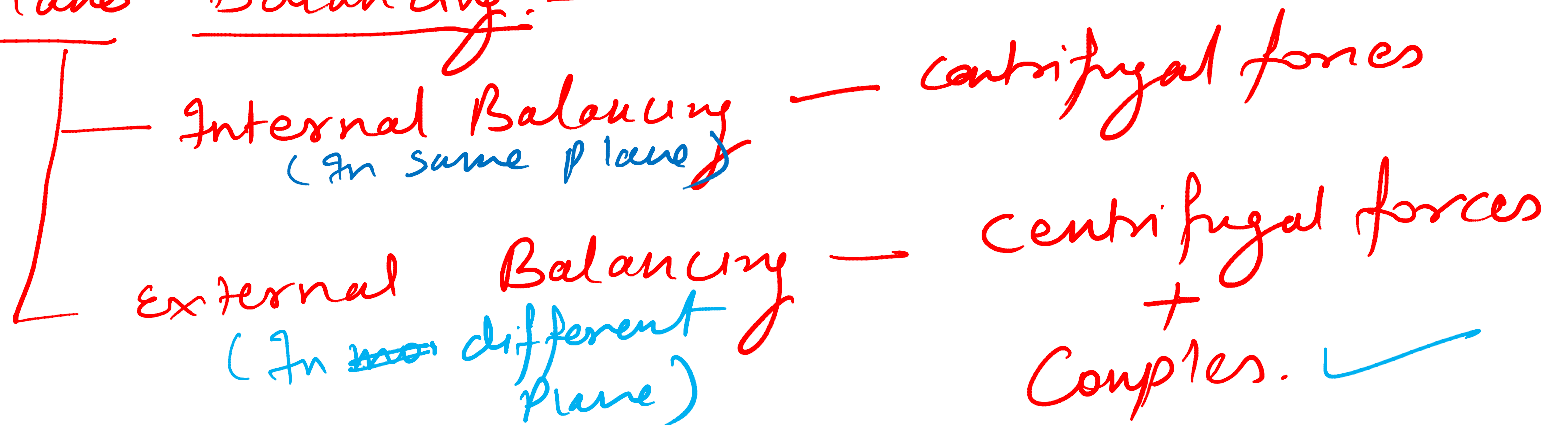 Balancing:-
Internal Balancing — Centrifugal forces
(In same plane)
External Balancing — Centrifugal forces
(In different plane)
+
Couples.